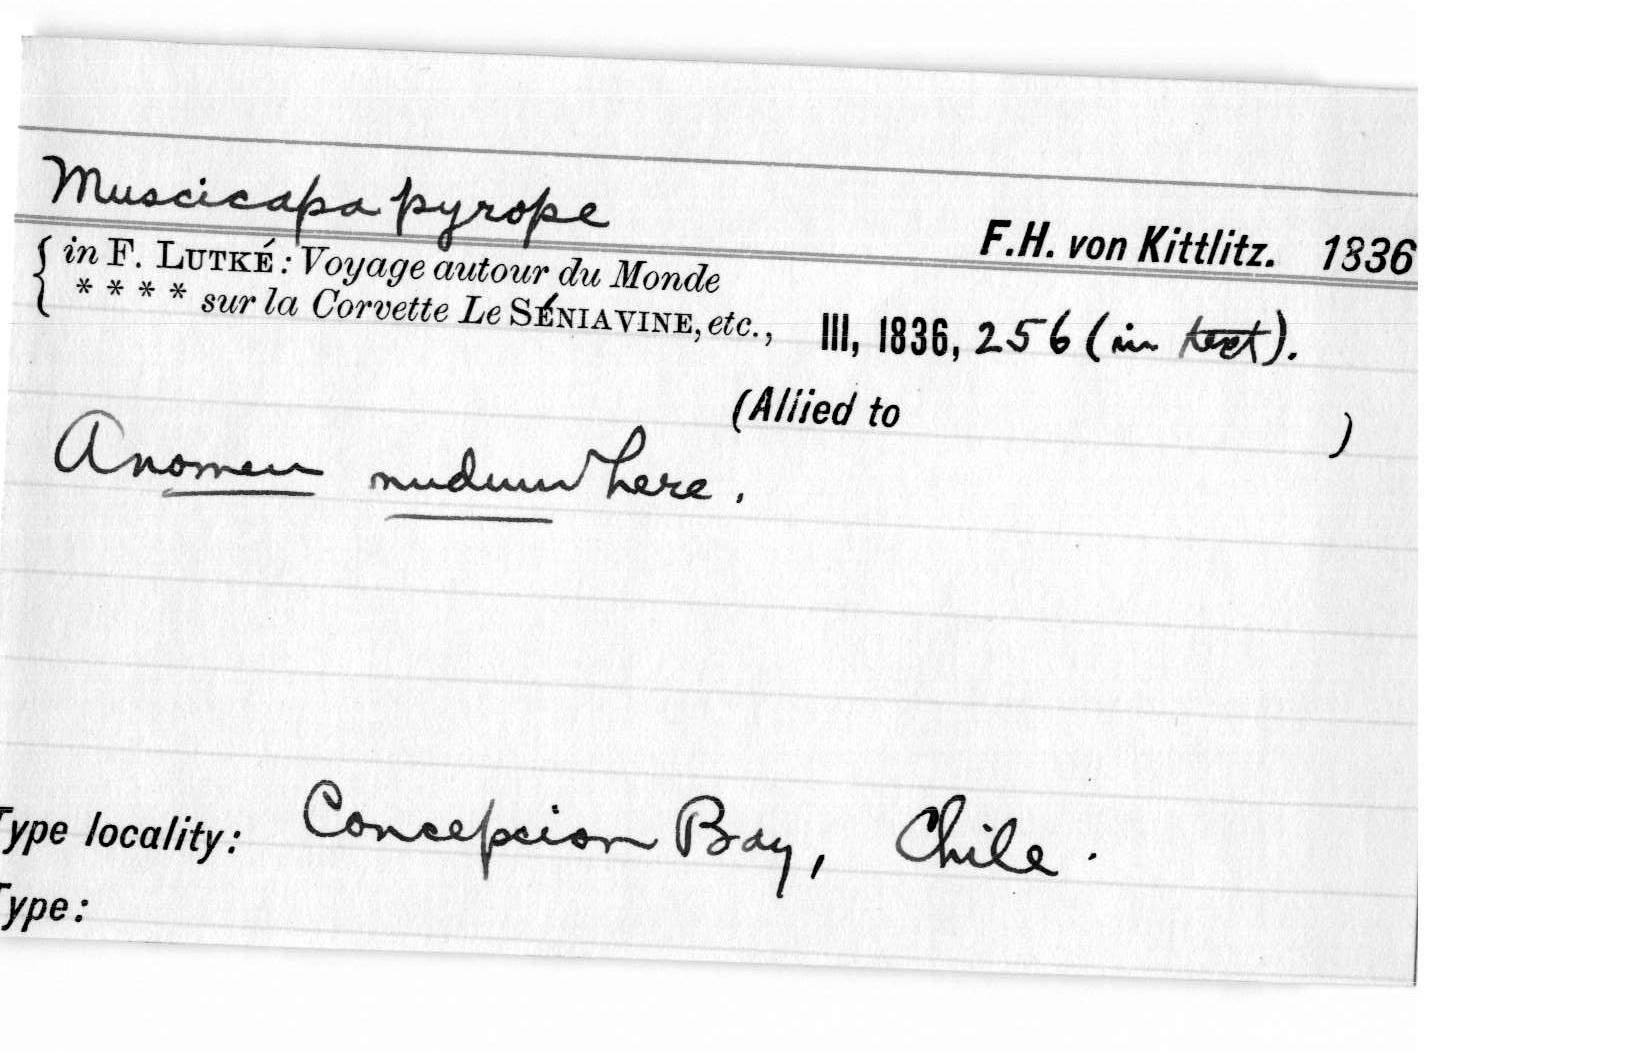 Muscicapa pyrope
F.H. von Kittlitz. 1836
in F. LUTKÉ: Voyage autour du Monde
* * * * sur la Corvette Le SÉNIAVINE, etc., III, 1836, 256 (in text).
(Allied to )
A nomen nudum here.
Type locality: Concepcion Bay, Chile.
Type: